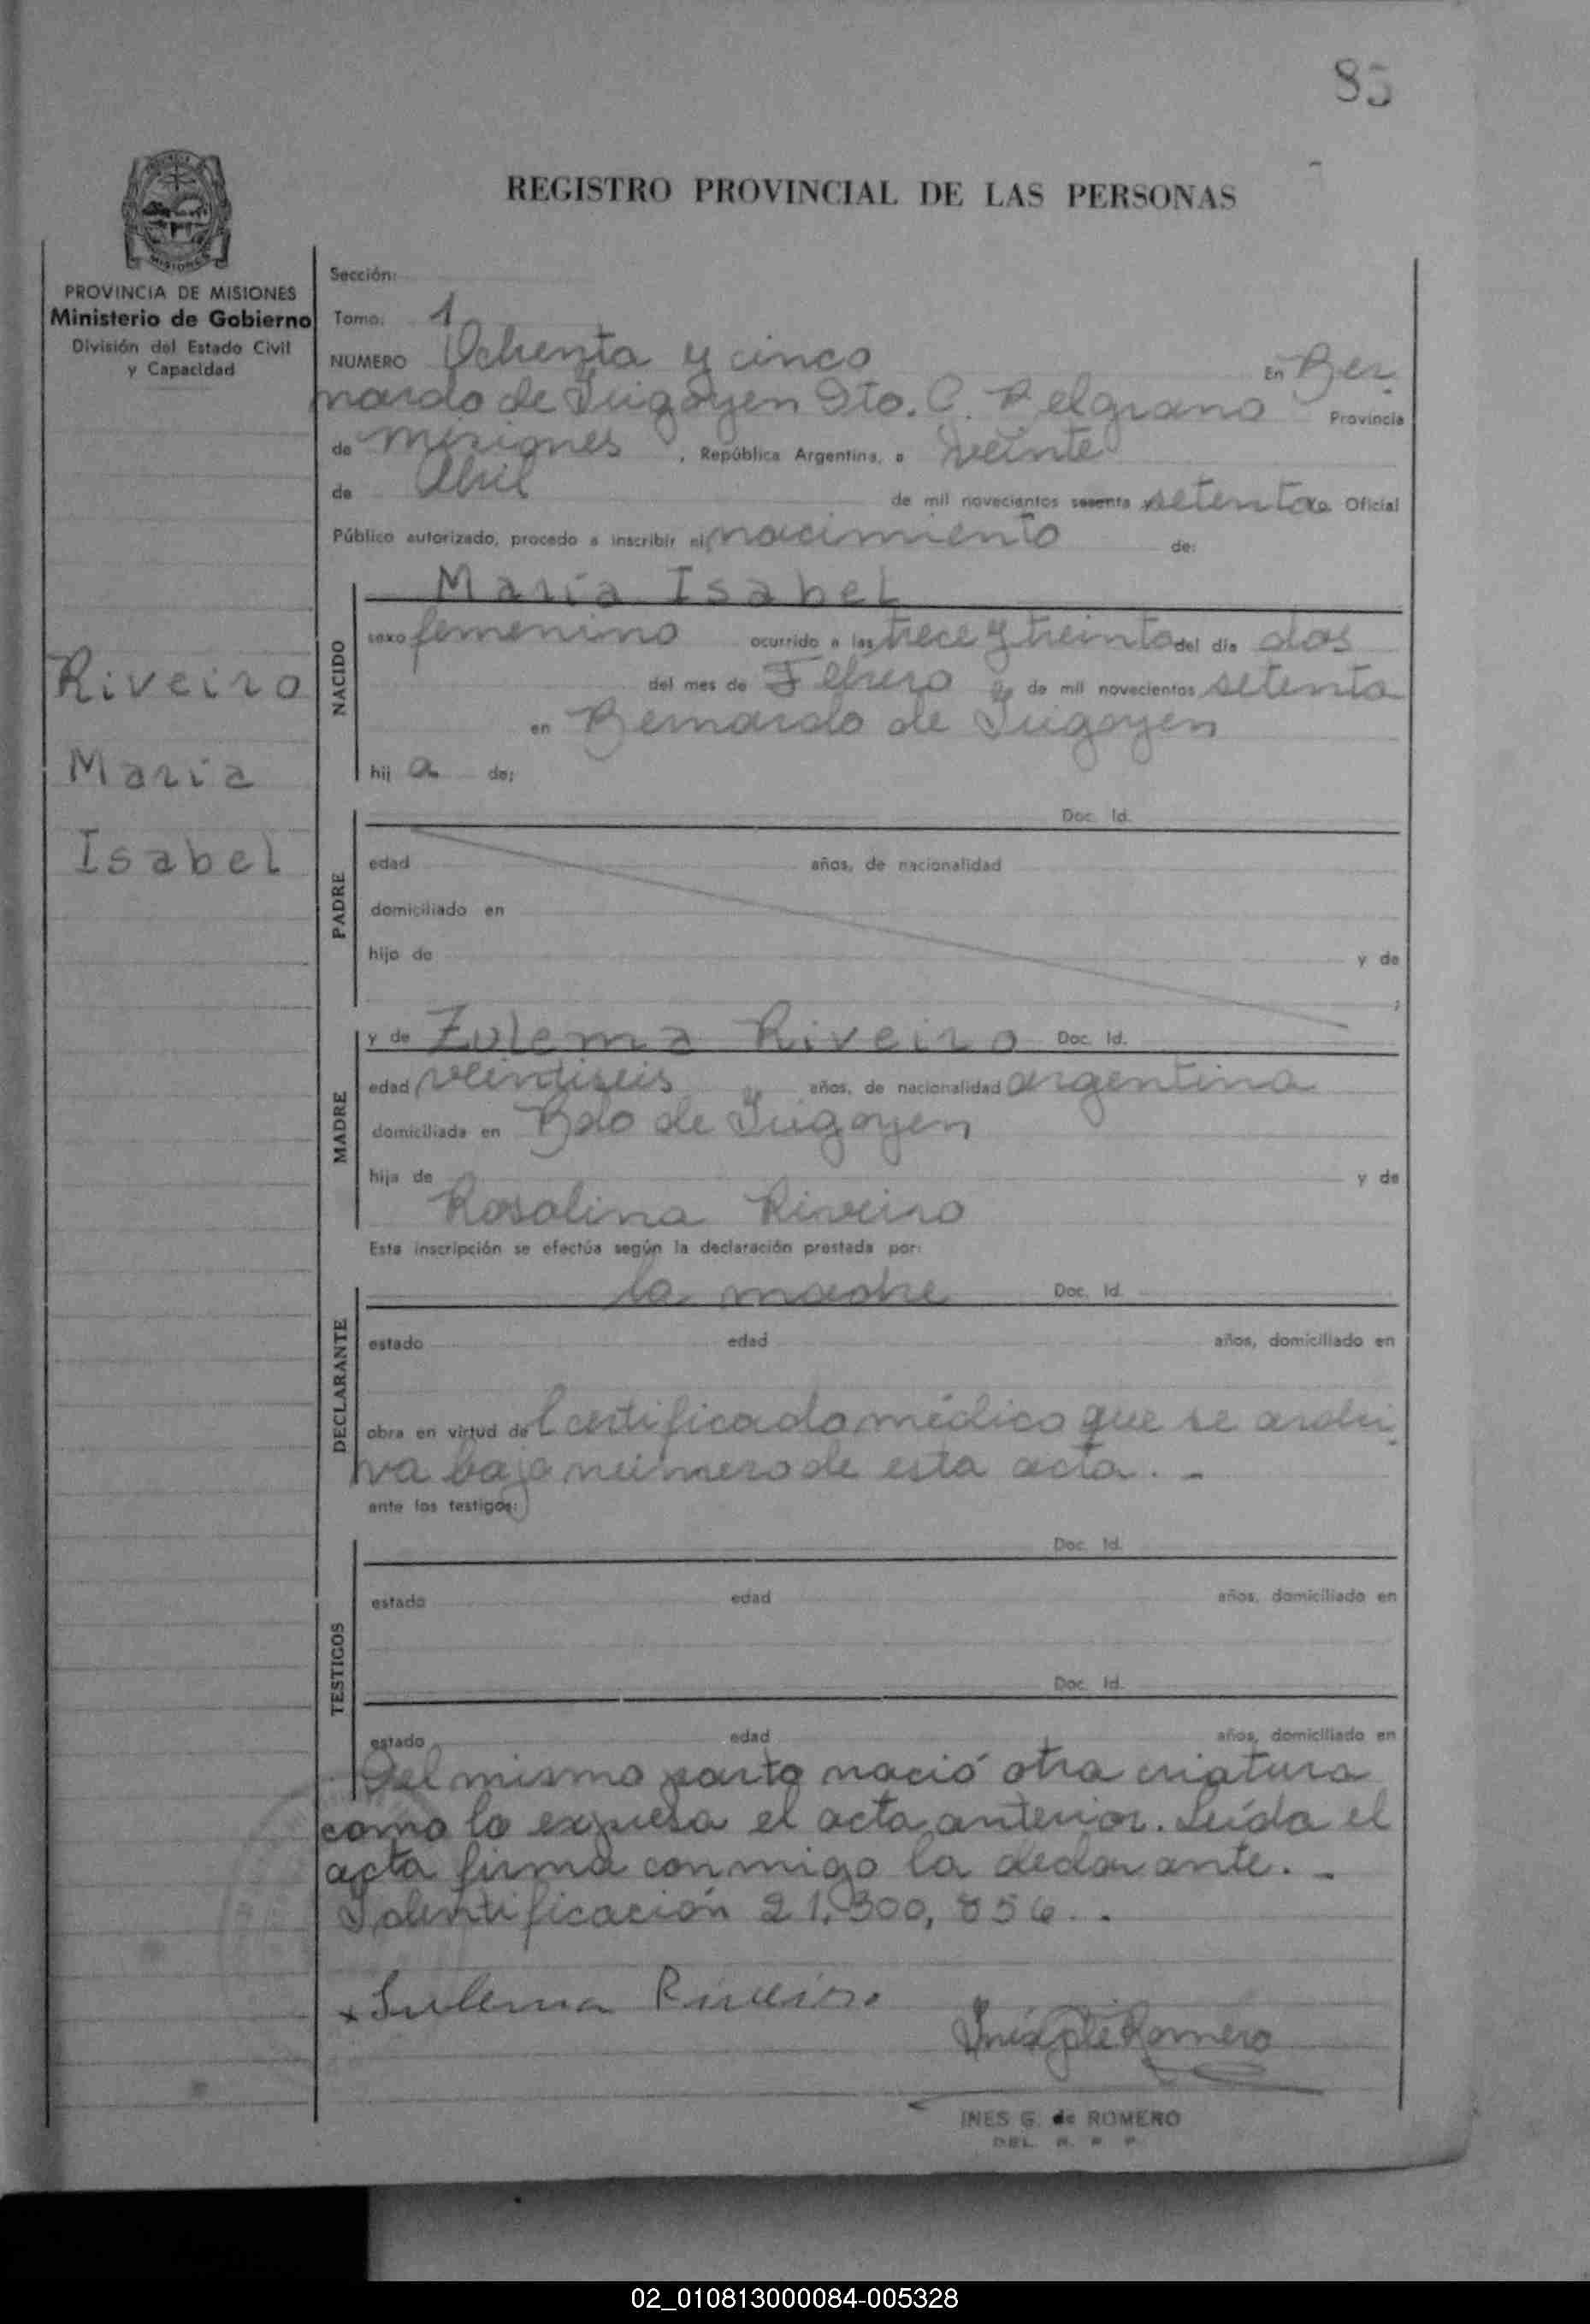 85
REGISTRO PROVINCIAL DE LAS PERSONAS
MISIONES
PROVINCIA DE MISIONES
Ministerio de Gobierno
División del Estado Civil
y Capacidad
Riveiro
Maria
Isabel
Sección:
Tomo: 1
NUMERO Ochenta y cinco En Ber
nardo de Irigoyen Dto. G. Belgrano Provincia
de Misiones, República Argentina, a veinte
de Abril de mil novecientos sesenta y setenta Oficial
Público autorizado, procedo a inscribir el nacimiento de:
NACIDO
María Isabel
sexo femenino ocurrido a las trece y treinta del día dos
del mes de Febrero de mil novecientos setenta
en Bernardo de Irigoyen
hij a de;
PADRE
Doc. Id.
edad años, de nacionalidad
domiciliado en
hijo de y de
;
MADRE
y de Zulema Riveiro Doc. Id.
edad veintiseis años, de nacionalidad argentina
domiciliada en Bdo de Irigoyen
hija de y de
Rosalina Riveiro
Esta inscripción se efectúa según la declaración prestada por:
DECLARANTE
la madre Doc. Id.
estado edad años, domiciliado en
obra en virtud del certificado médico que se archi
va bajo número de esta acta. -
ante los testigos:
TESTIGOS
Doc. Id.
estado edad años, domiciliado en
Doc. Id.
estado edad años, domiciliado en
Del mismo parto nació otra criatura
como lo expresa el acta anterior. Leída el
acta firma conmigo la declarante. -
Identificación 21,300,856. .
x Sulema Riveiro
Inés G de Romero
INES G. de ROMERO
DEL. R. P. P.
02_010813000084-005328